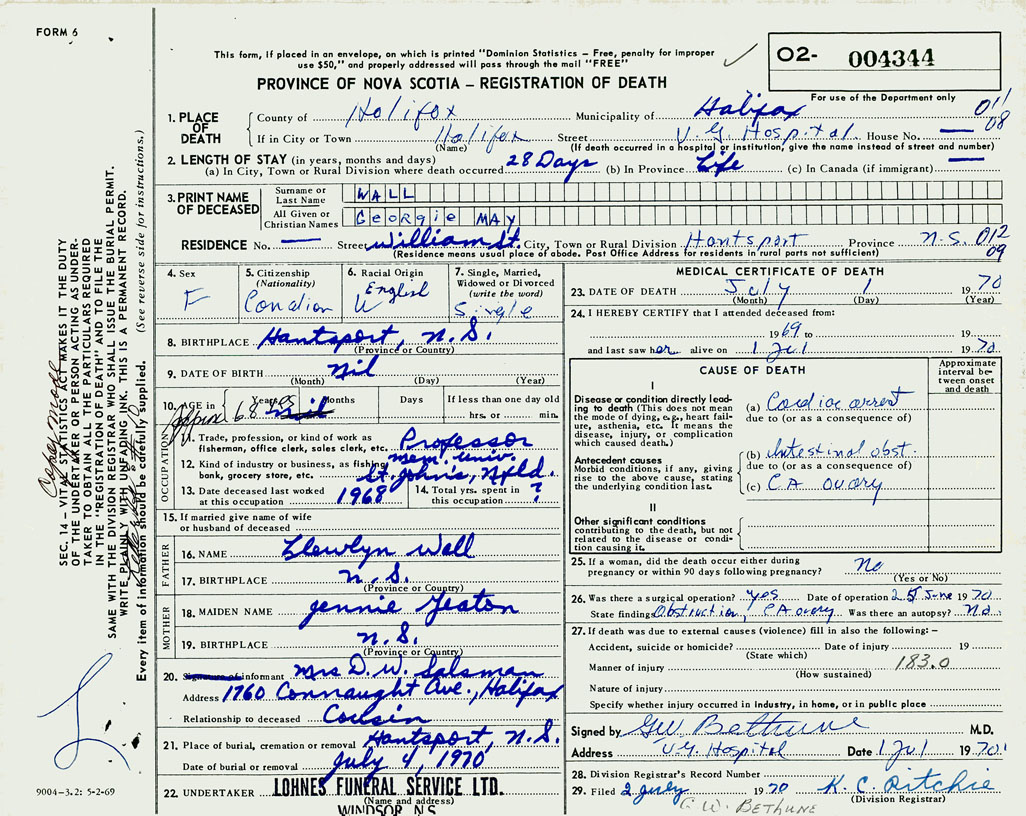 FORM 6
This form, if placed in an envelope, on which is printed "Dominion Statistics – Free, penalty for improper
use $50," and properly addressed will pass through the mail "FREE"
O2- 004344
PROVINCE OF NOVA SCOTIA – REGISTRATION OF DEATH
For use of the Department only
011
08
1. PLACE OF DEATH
County of Halifax Municipality of Halifax
If in City or Town Halifax Street V. G. Hospital House No. —
(Name) (If death occurred in a hospital or institution, give the name instead of street and number)
2. LENGTH OF STAY (in years, months and days)
(a) In City, Town or Rural Division where death occurred 28 Days (b) In Province Life (c) In Canada (if immigrant) —
3. PRINT NAME OF DECEASED
Surname or Last Name WALL
All Given or Christian Names Georgie MAY
RESIDENCE No. — Street William St. City, Town or Rural Division Hantsport Province N.S. 012
09
(Residence means usual place of abode. Post Office Address for residents in rural parts not sufficient)
4. Sex F
5. Citizenship (Nationality) Canadian
6. Racial Origin English W
7. Single, Married, Widowed or Divorced (write the word) Single
8. BIRTHPLACE Hantsport, N.S.
(Province or Country)
9. DATE OF BIRTH Nil
(Month) (Day) (Year)
10. AGE in Years Months Days If less than one day old
Approx 68 yrs hrs. or min.
OCCUPATION
11. Trade, profession, or kind of work as
fisherman, office clerk, sales clerk, etc. Professor
12. Kind of industry or business, as fishing, mem. univ.
bank, grocery store, etc. St. John's, Nfld.
13. Date deceased last worked at this occupation 1968
14. Total yrs. spent in this occupation ?
15. If married give name of wife
or husband of deceased
FATHER
16. NAME Llewlyn Wall
17. BIRTHPLACE N.S.
(Province or Country)
MOTHER
18. MAIDEN NAME Jennie Yeaton
19. BIRTHPLACE N.S.
(Province or Country)
20. Signature of informant Mrs D. W. Salsman
Address 1760 Connaught Ave., Halifax
Relationship to deceased Cousin
21. Place of burial, cremation or removal Hantsport, N.S.
Date of burial or removal July 4, 1970
22. UNDERTAKER LOHNES FUNERAL SERVICE LTD.
(Name and address)
WINDSOR, N.S.
MEDICAL CERTIFICATE OF DEATH
23. DATE OF DEATH July 1 1970
(Month) (Day) (Year)
24. I HEREBY CERTIFY that I attended deceased from:
1969 to 19
and last saw her alive on 1 Jul 1970
CAUSE OF DEATH
Approximate interval between onset and death
I
Disease or condition directly leading to death (This does not mean
the mode of dying, e.g., heart failure, asthenia, etc. It means the
disease, injury, or complication which caused death.)
(a) Cardiac arrest
due to (or as a consequence of)
Antecedent causes
Morbid conditions, if any, giving rise to the above cause, stating
the underlying condition last.
(b) Intestinal obst.
due to (or as a consequence of)
(c) CA ovary
II
Other significant conditions
contributing to the death, but not
related to the disease or condition causing it.
25. If a woman, did the death occur either during
pregnancy or within 90 days following pregnancy? No
(Yes or No)
26. Was there a surgical operation? yes Date of operation June 1970
State findings Obstruction, CA ovary Was there an autopsy? No
27. If death was due to external causes (violence) fill in also the following: –
Accident, suicide or homicide? Date of injury 19
(State which) 183.0
Manner of injury
(How sustained)
Nature of injury
Specify whether injury occurred in industry, in home, or in public place
Signed by GW Bethune M.D.
Address V G Hospital Date 1 Jul 1970
28. Division Registrar's Record Number
29. Filed 2 July 1970 K. C. Ritchie
(Division Registrar)
G. W. BETHUNE
SEC. 14 – VITAL STATISTICS ACT MAKES IT THE DUTY
OF THE UNDERTAKER OR PERSON ACTING AS UNDER-
TAKER TO OBTAIN ALL THE PARTICULARS REQUIRED
IN THE "REGISTRATION OF DEATH" AND TO FILE THE
SAME WITH THE DIVISION REGISTRAR WHO SHALL ISSUE THE BURIAL PERMIT.
WRITE PLAINLY WITH UNFADING INK. THIS IS A PERMANENT RECORD.
Every item of information should be carefully supplied. (See reverse side for instructions.)
9004-3.2: 5-2-69